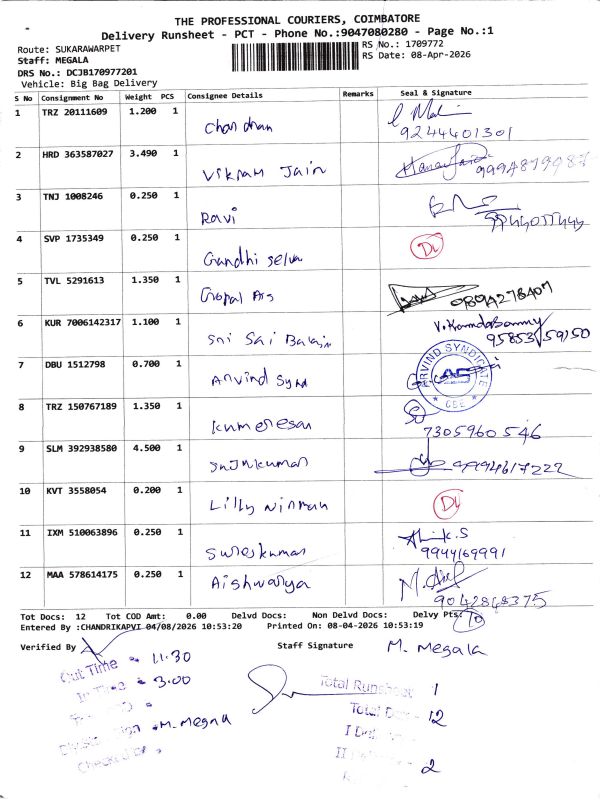 THE PROFESSIONAL COURIERS, COIMBATORE
Delivery Runsheet - PCT - Phone No.:9047080280 - Page No.:1
Route: SUKARAWARPET
RS No.: 1709772
Staff: MEGALA
RS Date: 08-Apr-2026
DRS No.: DCJB170977201
Vehicle: Big Bag Delivery
S No Consignment No Weight PCS Consignee Details Remarks Seal & Signature
1 TRZ 20111609 1.200 1 Chandran
9244401301
2 HRD 363587027 3.490 1 Vikram Jain
3 TNJ 1008246 0.250 1 Ravi
4 SVP 1735349 0.250 1 Gandhi selva DL
5 TVL 5291613 1.350 1 Gopal Ars 9894278407
6 KUR 7006142317 1.100 1 Sri Sai Balaji
95853 59150
7 DBU 1512798 0.700 1 Arvind Synd ARVIND SYNDICATE CBE
8 TRZ 150767189 1.350 1 Kumeresan
7305960546
9 SLM 392938580 4.500 1 99994617222
10 KVT 3558054 0.200 1 Lilly Nirmau DL
11 IXM 510063896 0.250 1 Sureskumar
9944169991
12 MAA 578614175 0.250 1 Aishwarya
9042848375
Tot Docs: 12 Tot COD Amt: 0.00 Delvd Docs: Non Delvd Docs: Delvy Pts: 10
Entered By :CHANDRIKAPVI 04/08/2026 10:53:20 Printed On: 08-04-2026 10:53:19
Verified By Staff Signature M. Megala
Out Time 11.30
In Time 3.00
Total Runsheet 1
Total Doc 12
Sign M. Megala
2